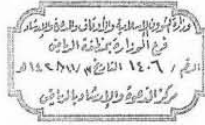 وزارة الشؤون الإسلامية والأوقاف والدعوة والإرشاد
فرع الوزارة بمنطقة الرياض
الرقم / ١٤٠٦ التاريخ ١٤٢٢/٧/٧هـ
مركز الدعوة والإرشاد بالرياض